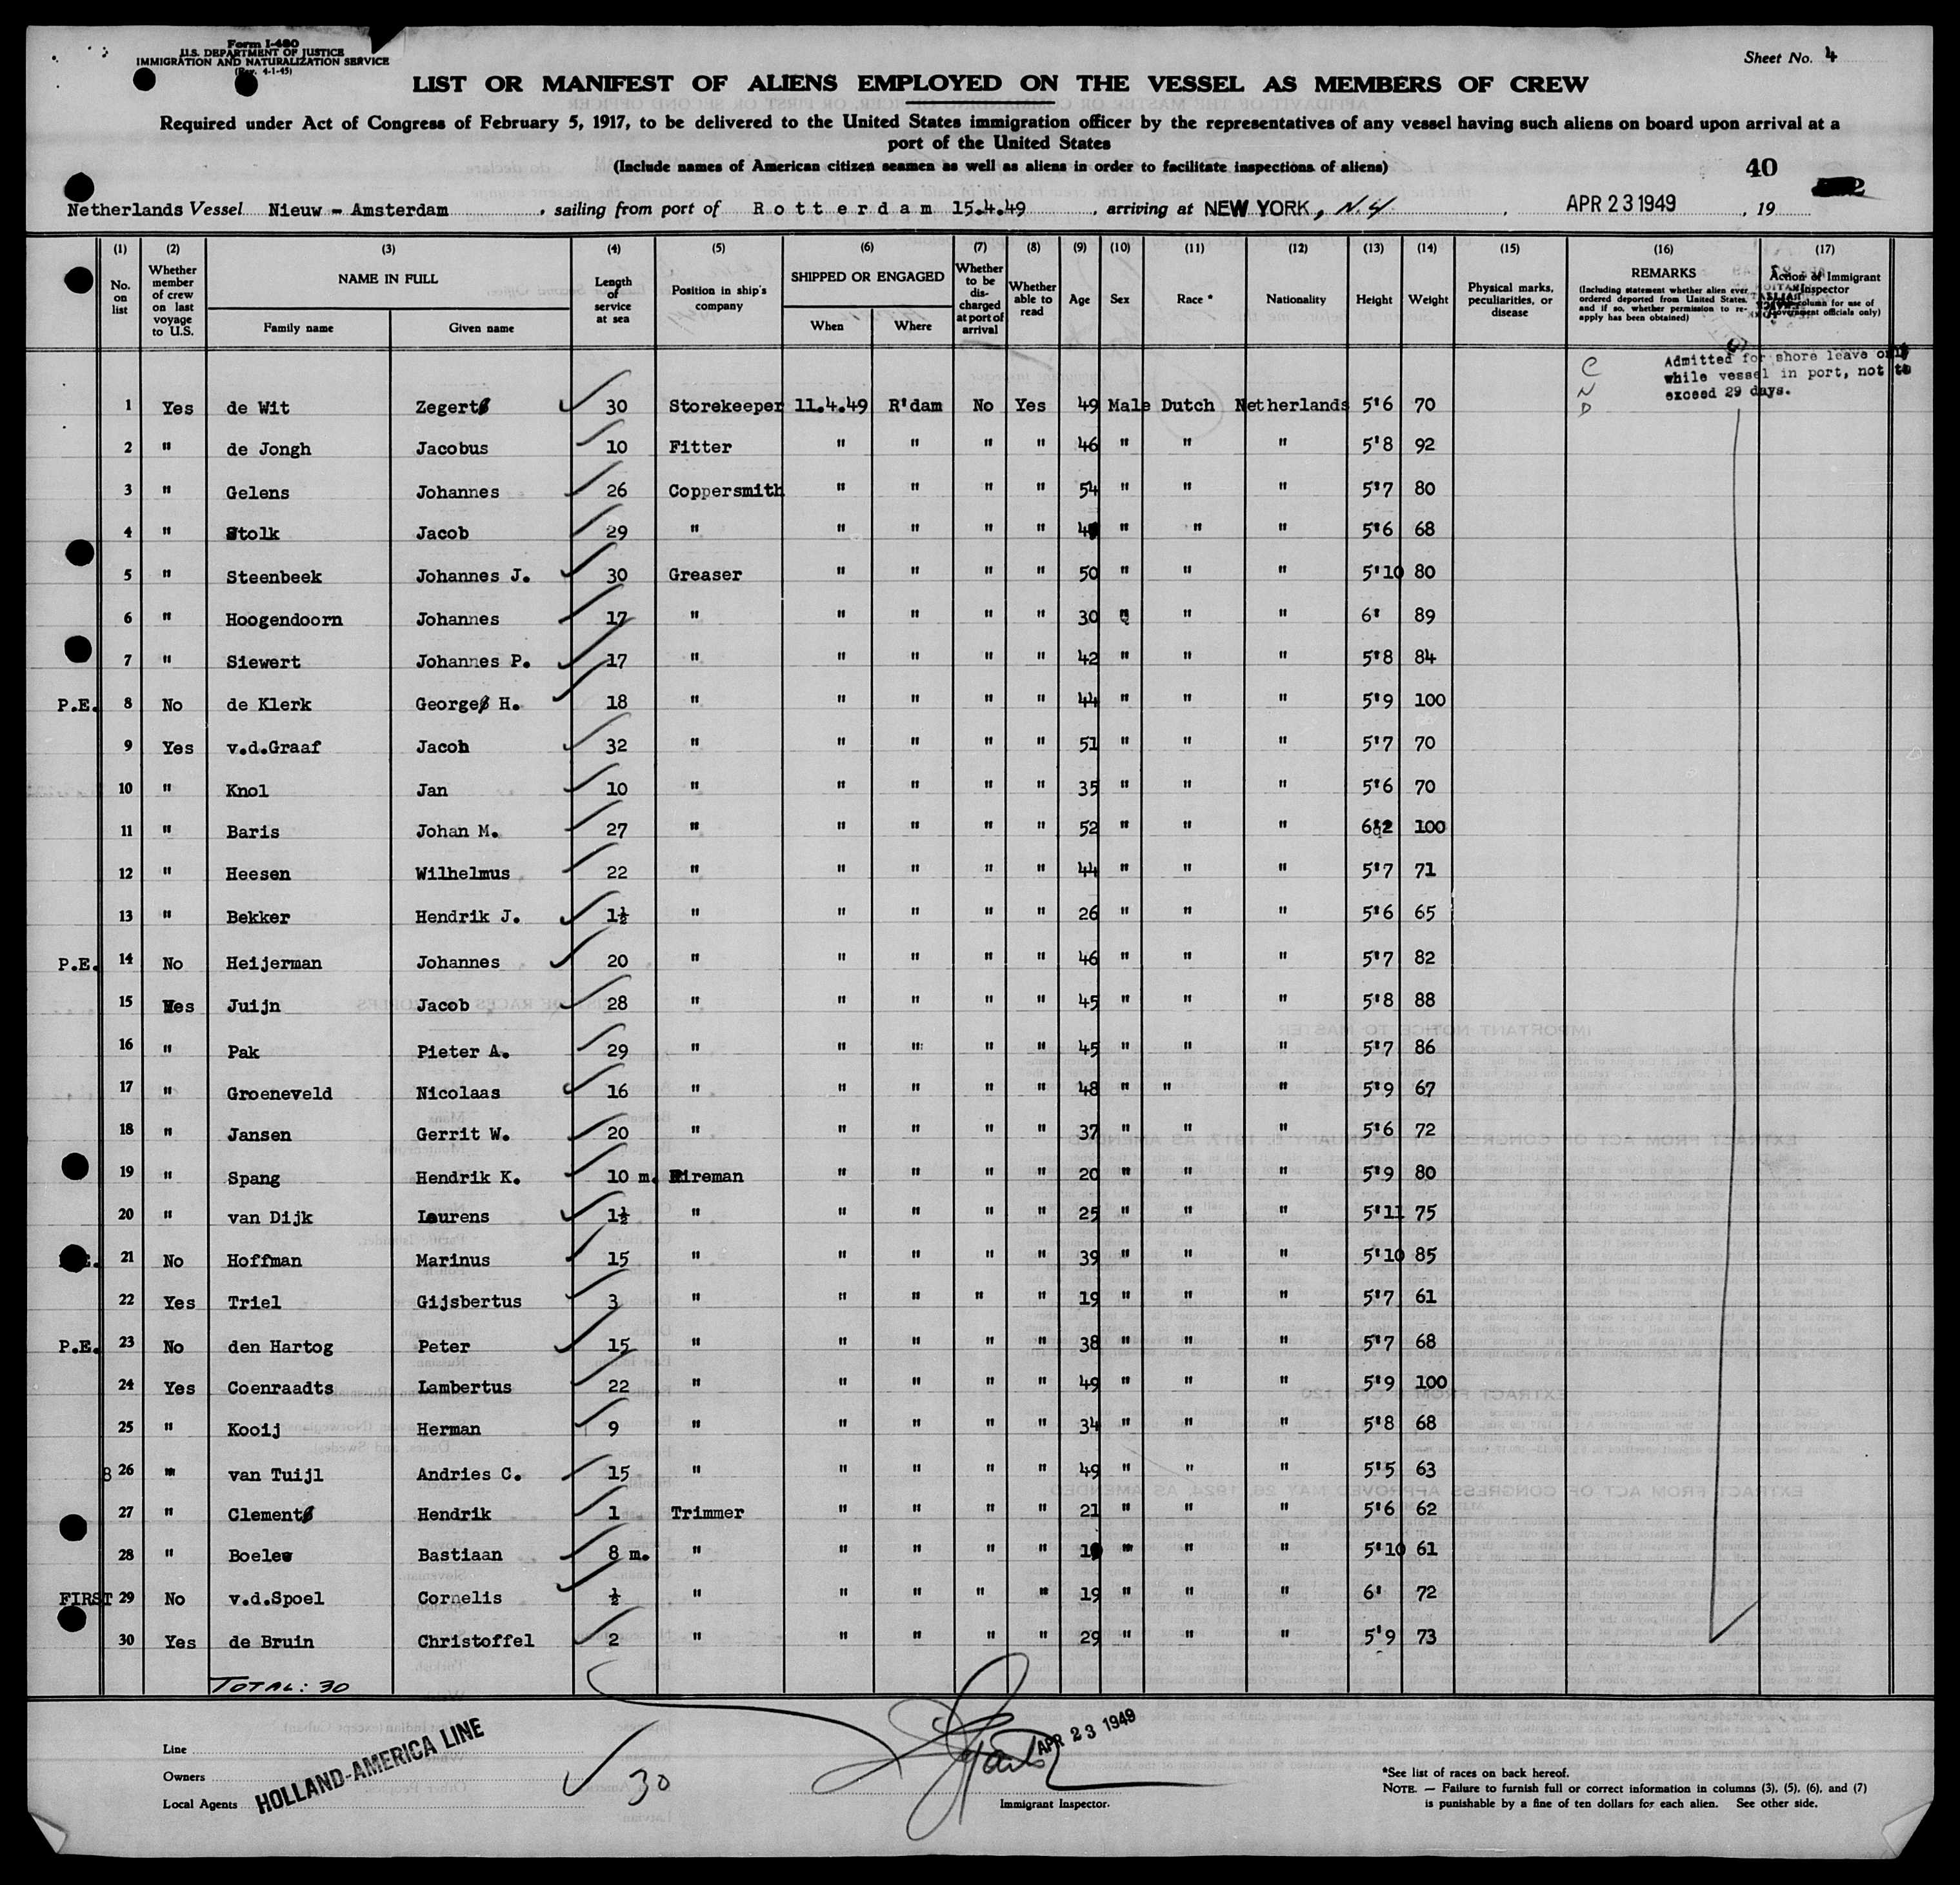 Form I-480
U.S. DEPARTMENT OF JUSTICE
IMMIGRATION AND NATURALIZATION SERVICE
(Rev. 4-1-45)
Sheet No. 4
LIST OR MANIFEST OF ALIENS EMPLOYED ON THE VESSEL AS MEMBERS OF CREW
Required under Act of Congress of February 5, 1917, to be delivered to the United States immigration officer by the representatives of any vessel having such aliens on board upon arrival at a
port of the United States
(Include names of American citizen seamen as well as aliens in order to facilitate inspections of aliens)
40
Netherlands Vessel Nieuw - Amsterdam , sailing from port of Rotterdam 15.4.49 , arriving at NEW YORK, N.Y. , APR 23 1949 , 19
(1) (2) (3) (4) (5) (6) (7) (8) (9) (10) (11) (12) (13) (14) (15) (16) (17)
No. on list
Whether member of crew on last voyage to U.S.
NAME IN FULL
Family name Given name
Length of service at sea
Position in ship's company
SHIPPED OR ENGAGED
When Where
Whether to be discharged at port of arrival
Whether able to read
Age Sex Race * Nationality Height Weight
Physical marks, peculiarities, or disease
REMARKS
(Including statement whether alien ever ordered deported from United States, and if so, whether permission to reapply has been obtained)
Action of Immigrant Inspector
(This column for use of Government officials only)
C
N
D
Admitted for shore leave only
while vessel in port, not to
exceed 29 days.
1 Yes de Wit Zegert 30 Storekeeper 11.4.49 R'dam No Yes 49 Male Dutch Netherlands 5'6 70
2 " de Jongh Jacobus 10 Fitter " " " " 46 " " " 5'8 92
3 " Gelens Johannes 26 Coppersmith " " " " 54 " " " 5'7 80
4 " Stolk Jacob 29 " " " " " " " " 5'6 68
5 " Steenbeek Johannes J. 30 Greaser " " " " 50 " " " 5'10 80
6 " Hoogendoorn Johannes 17 " " " " " 30 " " " 6' 89
7 " Siewert Johannes P. 17 " " " " " 42 " " " 5'8 84
P.E. 8 No de Klerk George H. 18 " " " " " 44 " " " 5'9 100
9 Yes v.d.Graaf Jacob 32 " " " " " 51 " " " 5'7 70
10 " Knol Jan 10 " " " " " 35 " " " 5'6 70
11 " Baris Johan M. 27 " " " " " 52 " " " 6'2 100
12 " Heesen Wilhelmus 22 " " " " " 44 " " " 5'7 71
13 " Bekker Hendrik J. 1½ " " " " " 26 " " " 5'6 65
P.E. 14 No Heijerman Johannes 20 " " " " " 46 " " " 5'7 82
15 Yes Juijn Jacob 28 " " " " " 45 " " " 5'8 88
16 " Pak Pieter A. 29 " " " " " 45 " " " 5'7 86
17 " Groeneveld Nicolaas 16 " " " " " 48 " " " 5'9 67
18 " Jansen Gerrit W. 20 " " " " " 37 " " " 5'6 72
19 " Spang Hendrik K. 10 m. Fireman " " " " 20 " " " 5'9 80
20 " van Dijk Laurens 1½ " " " " " 25 " " " 5'11 75
21 No Hoffman Marinus 15 " " " " " 39 " " " 5'10 85
22 Yes Triel Gijsbertus 3 " " " " " 19 " " " 5'7 61
P.E. 23 No den Hartog Peter 15 " " " " " 38 " " " 5'7 68
24 Yes Coenraadts Lambertus 22 " " " " " 49 " " " 5'9 100
25 " Kooij Herman 9 " " " " " 34 " " " 5'8 68
8 26 " van Tuijl Andries C. 15 " " " " " 49 " " " 5'5 63
27 " Clement Hendrik 1 Trimmer " " " " 21 " " " 5'6 62
28 " Boele Bastiaan 8 m. " " " " " " " " 5'10 61
FIRST 29 No v.d.Spoel Cornelis ½ " " " " " 19 " " " 6' 72
30 Yes de Bruin Christoffel 2 " " " " " 29 " " " 5'9 73
TOTAL: 30
Line
Owners
Local Agents
HOLLAND-AMERICA LINE
30
APR 23 1949
Immigrant Inspector.
*See list of races on back hereof.
NOTE. — Failure to furnish full or correct information in columns (3), (5), (6), and (7)
is punishable by a fine of ten dollars for each alien. See other side.